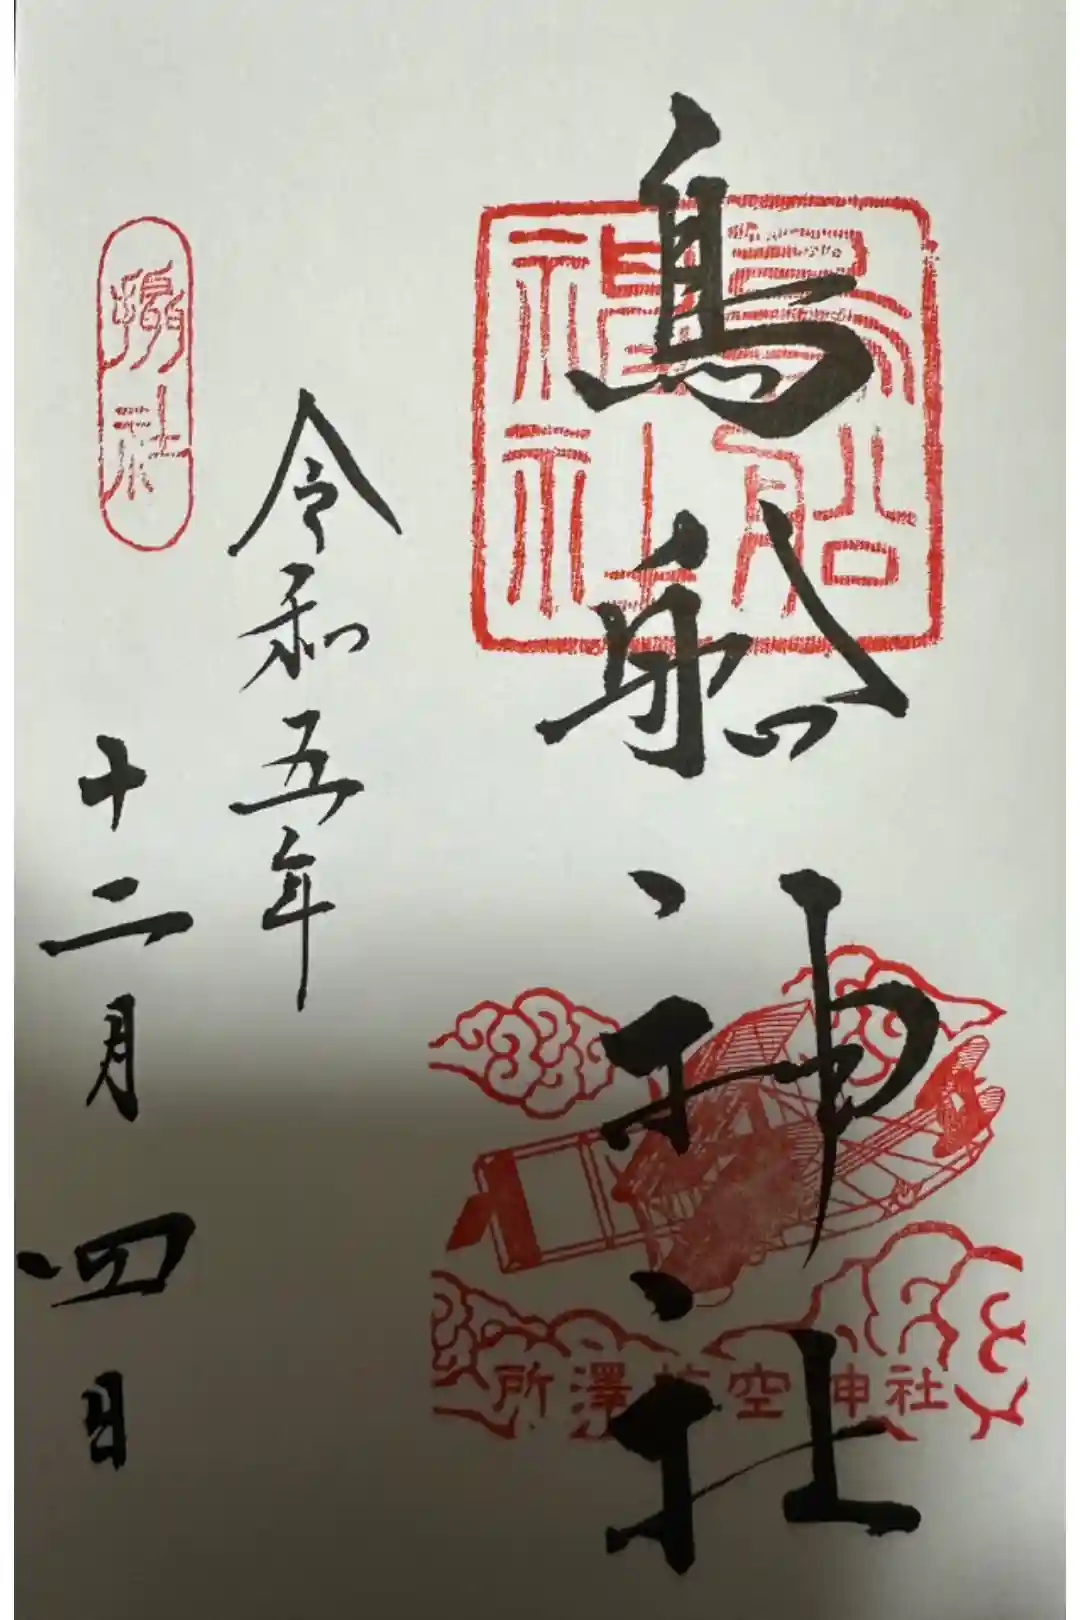 鳥船神社
鳥船
神社
所澤航空神社
令和五年
十二月四日